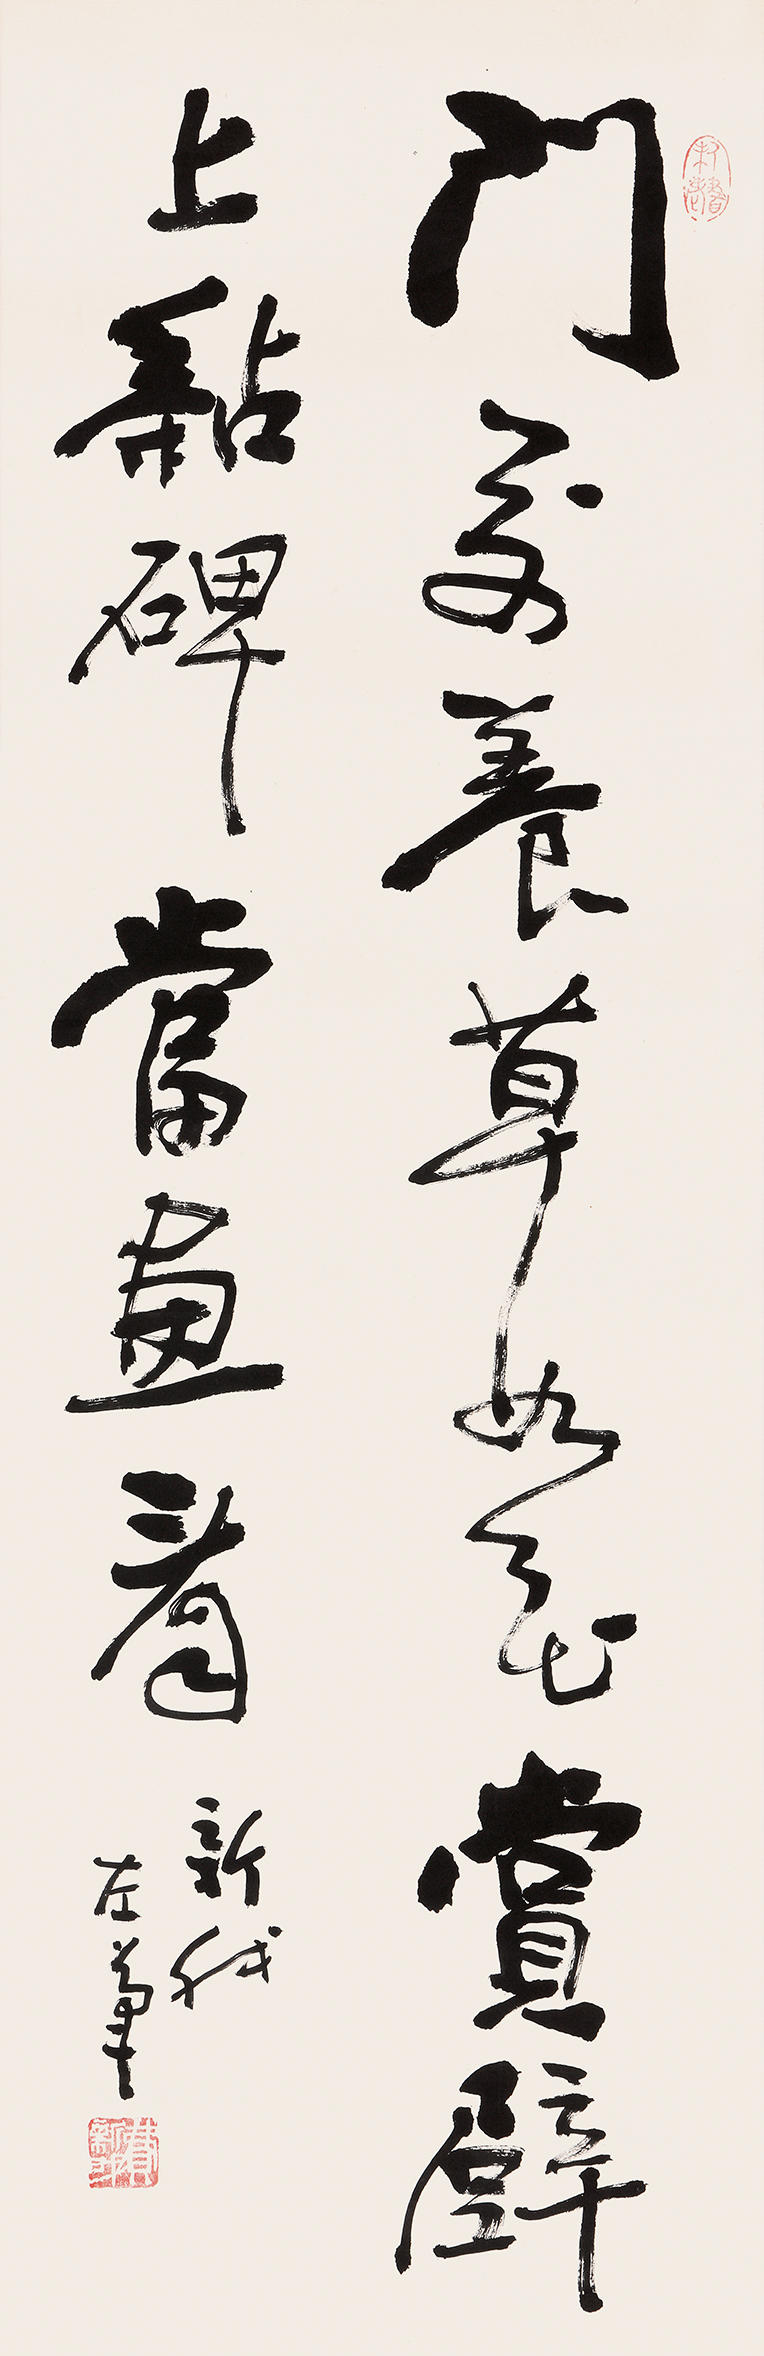 門養草如花賞壁
上黏碑當畫看
新我
左筆